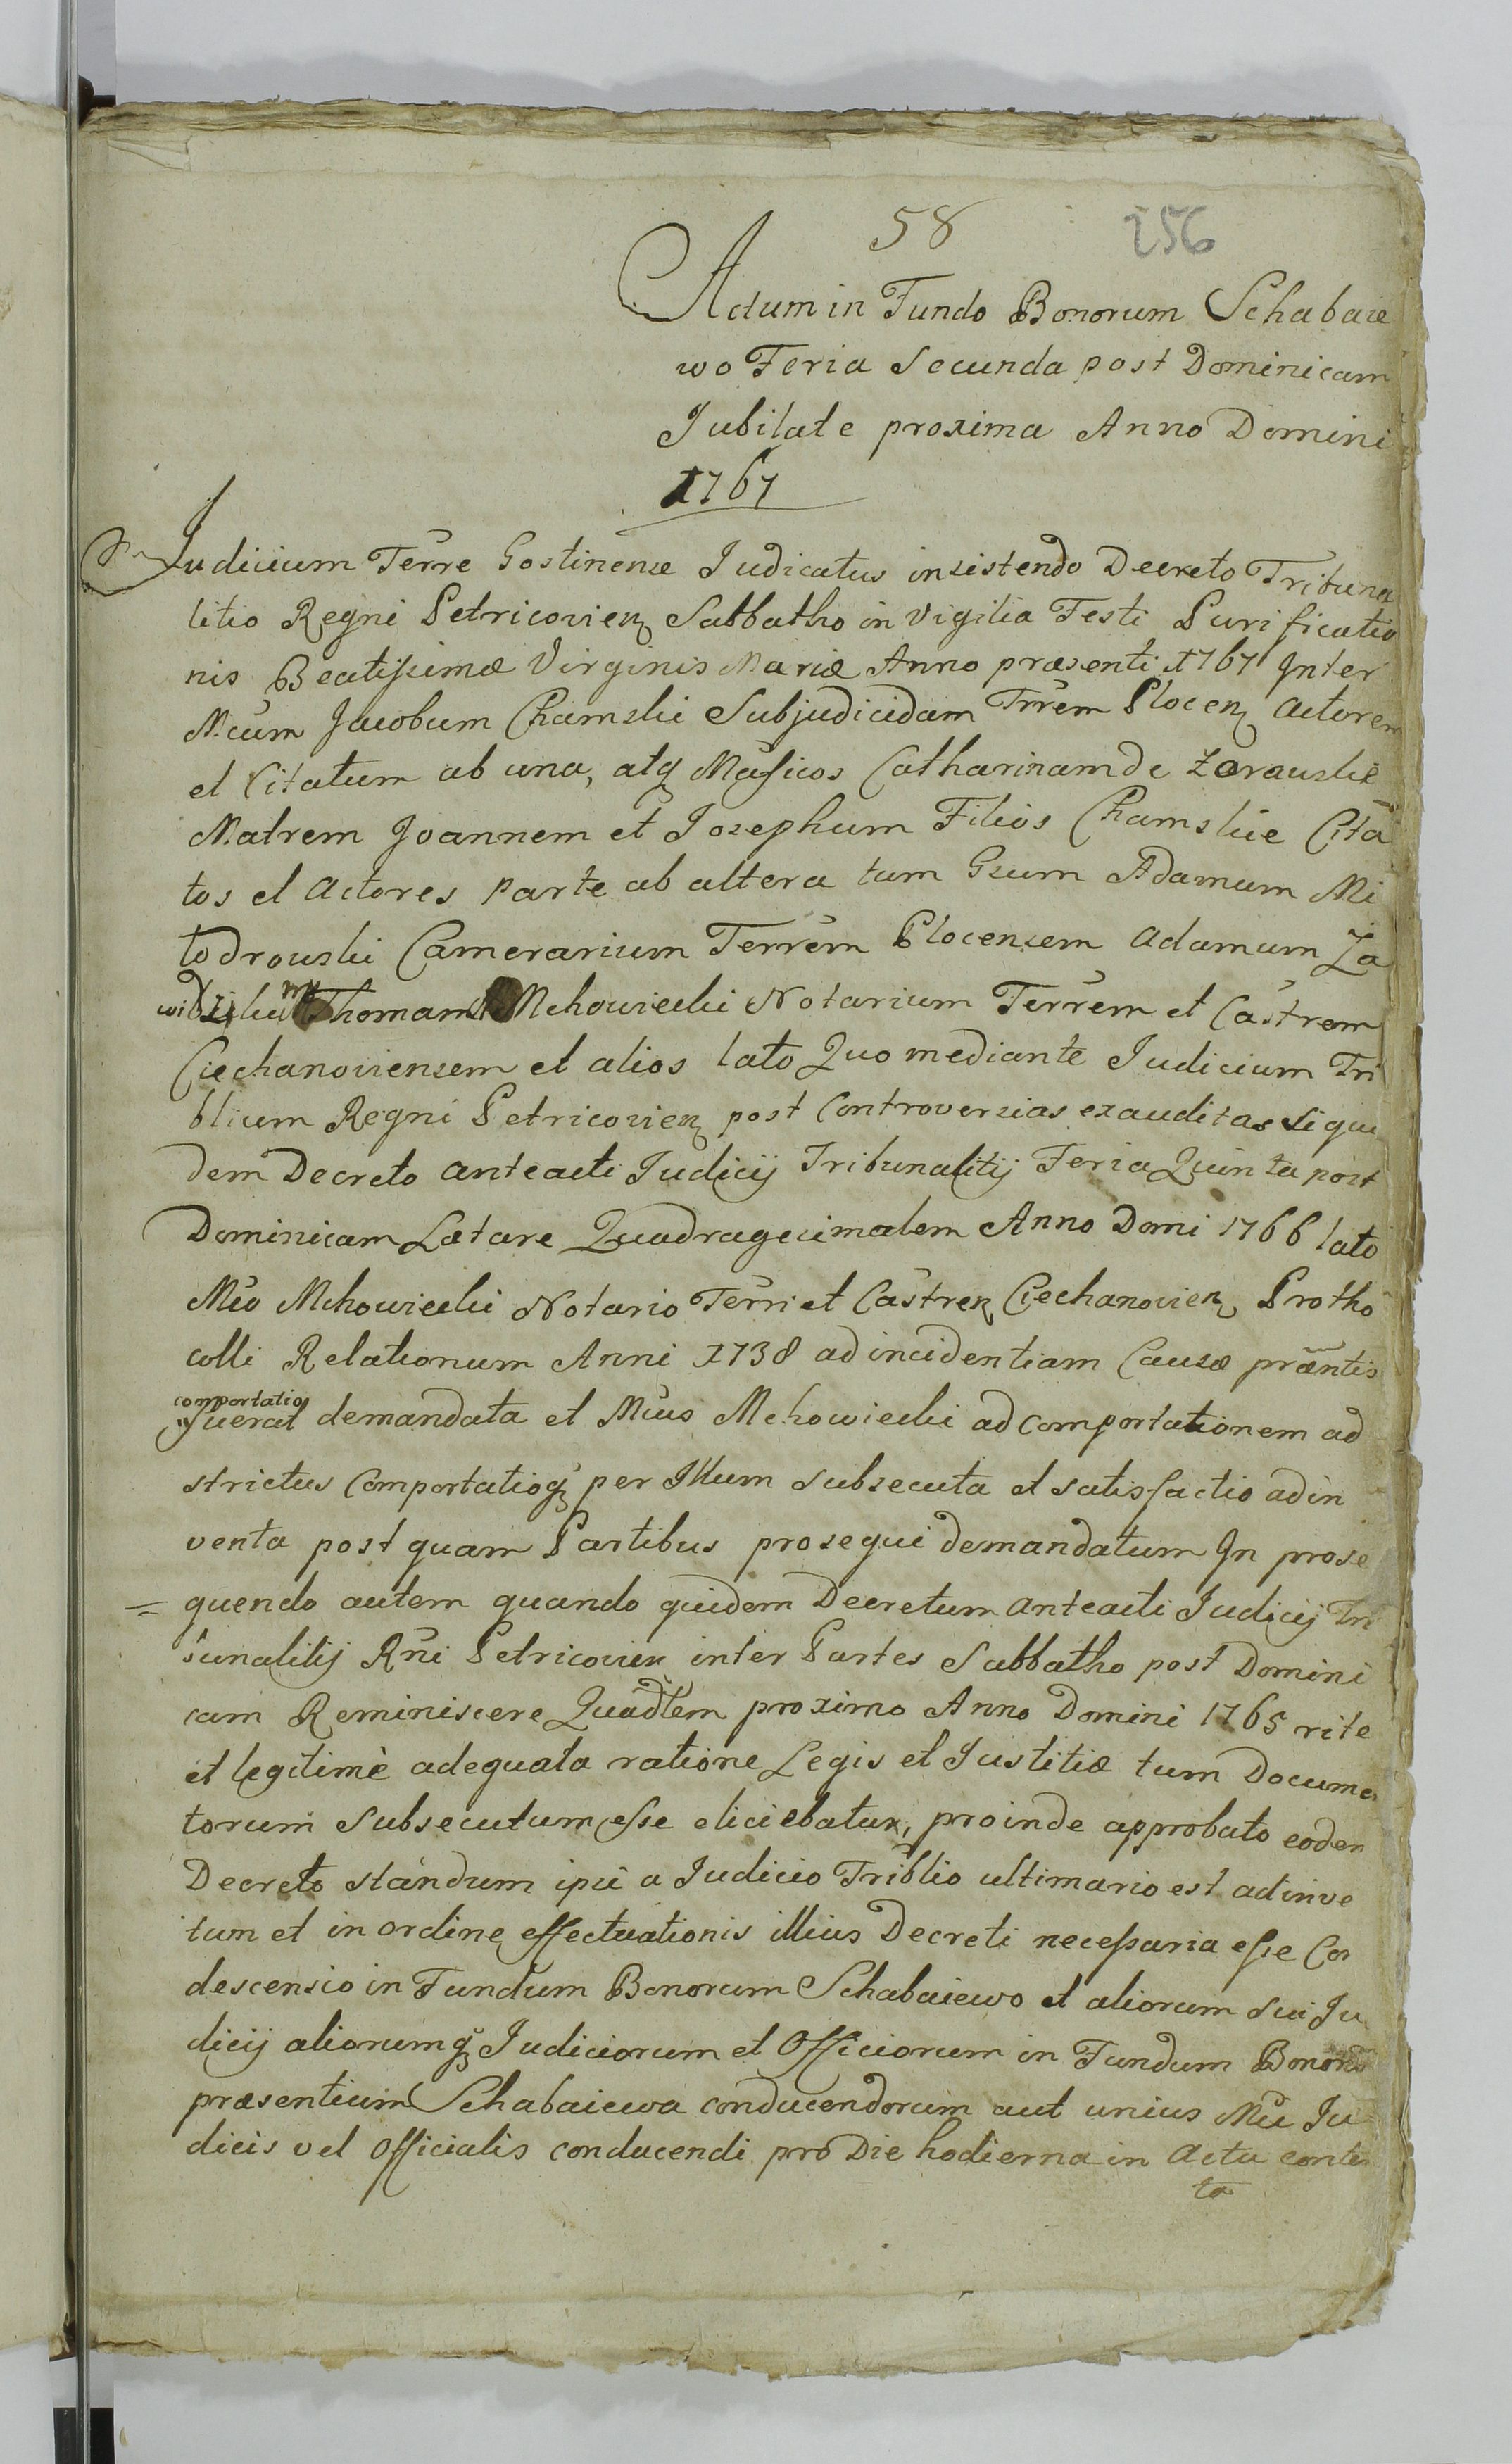 58 256
Actum in Fundo Bonorum Schabaie
wo Feria Secunda post Dominicam
Jubilate proxima Anno Domini
1767
Judicium Terre Gostinense Judicatus insistendo Decreto Tribuna
litio Regni Petricovien Sabbatho in Vigilia Festi Purificatio
nis Beatissimæ Virginis Mariæ Anno præsenti 1767 Inter
Mcum Jacobum Chamski Subjudicidam Trrem Plocen Actorem
et Citatum ab una, atq Mgficos Catharinam de
Matrem Joannem et Josephum Filios Chamskie Cita
tos et Actores Parte ab altera tum Gsum Adamum Mi
todrouski Camerarium Terrem Plocensem Adamum Za
widzki Thomam Mchowiecki Notarium Terrem et Castrem
Ciechanoviensem et alios lato Quo mediante Judicium Tri
blium Regni Petricovien post Controversias exauditas siqui
dem Decreto anteacti Judicij Tribunalitij Feria Quinta post
Dominicam Lætare Quadragesimalem Anno Domi 1766 lato
Mco Mchowiecki Notario Terri et Castren Ciechanovien Protho
colli Relationum Anni 1738 ad incidentiam Causæ præntis
comportatio
fuerat demandata et Mcus Mchowiecki ad comportationem ad
strictus Comportatioq per Illum subsecuta et satisfactio adin
venta post quam Partibus prosequi demandatum In prose
quendo autem quando quidem Decretum anteacti Judicij Tri
bunalitij Rni Petricovien inter Partes Sabbatho post Domini
cam Reminiscere Quadlem proximo Anno Domini 1765 rite
et legitimè adequata ratione Legis et Justitiæ tum Documen
torum subsecutum esse eliciebatur, proinde approbato eodem
Decreto standum ipsi a Judicio Triblio ultimario est adinve
tum et in ordine effectuationis illius Decreti necessaria esse Con
descensio in Fundum Bonorum Schabaiewo et aliorum sui Ju
dicij aliorumq Judiciorum et Officiorum in Fundum Bonorum
præsentium Schabaiewa conducendorum aut unius Mci Ju
dicis vel Officialis conducendi pro Die hodierna in Actu conten
ta